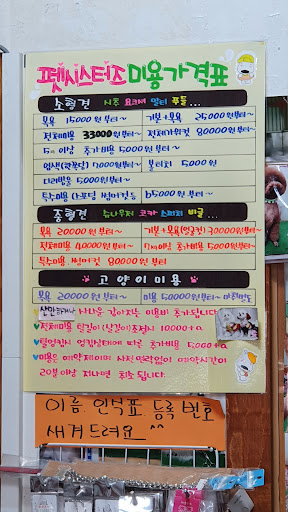 펫시스터즈 미용가격표
소형견 시츄 요크셔 말티 푸들...
목욕 15000원부터~ 기본+목욕 25000원부터~
전체미용 33000원부터~ 전체가위컷 80000원부터~
5kg이상 추가비용 5000원부터~
염색(귀꼬리) 7000원부터~ 물티처 5000원
다리털 5000원부터~
특수미용 썸머컷등 65000부터~
중형견 슈나우저 코카 스피츠 비글...
목욕 20000원부터~ 기본+목욕 30000원부터~
전체미용 40000부터~ 7kg이상 추가비용 5000부터~
특수미용. 썸머컷 80000원부터~
고양이미용
목욕 20000원부터~ 미용 50000원부터~
산만하거나 사나운 강아지는 미용비 추가됩니다.
전체미용 털길이(날길이)조정시 10000+a
털엉킴시 엉킴상태에 따른 추가비용 5,000+a
미용은 예약제이며 사전연락없이 예약시간이
20분이상 지나면 취소 됩니다.
이름 인식표 등록 번호
새겨드려요 ^^